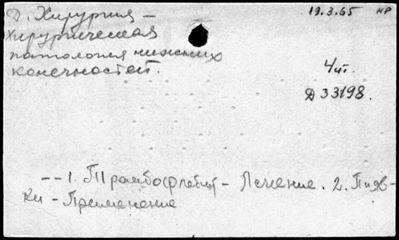 Д. Хирургия -
19.3.65 НР
Хирургическая
патология нижних
конечностей.
4 шт.
Д 33198.
-- 1. Тромбофлебит - Лечение. 2. Пияв-
ки - Применение